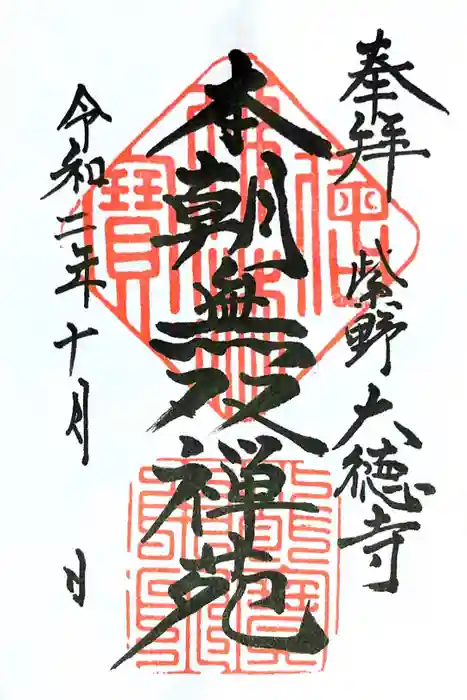 奉拝 紫野大徳寺
本朝無双禅苑
令和二年十月 日